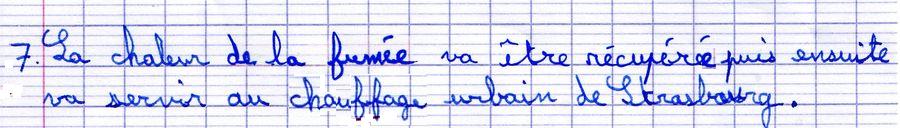 7. La chaleur de la fumée va être récupérée puis ensuite
va servir au chauffage urbain de Strasbourg.